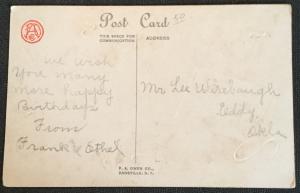 Post Card
THIS SPACE FOR
COMMUNICATION
ADDRESS
we wish
You many
more happy
Birthdays
From
Frank & Ethel
Mr Lee Wirebaugh
Leddy
Okla
F. A. OWEN CO.,
DANSVILLE, N. Y.